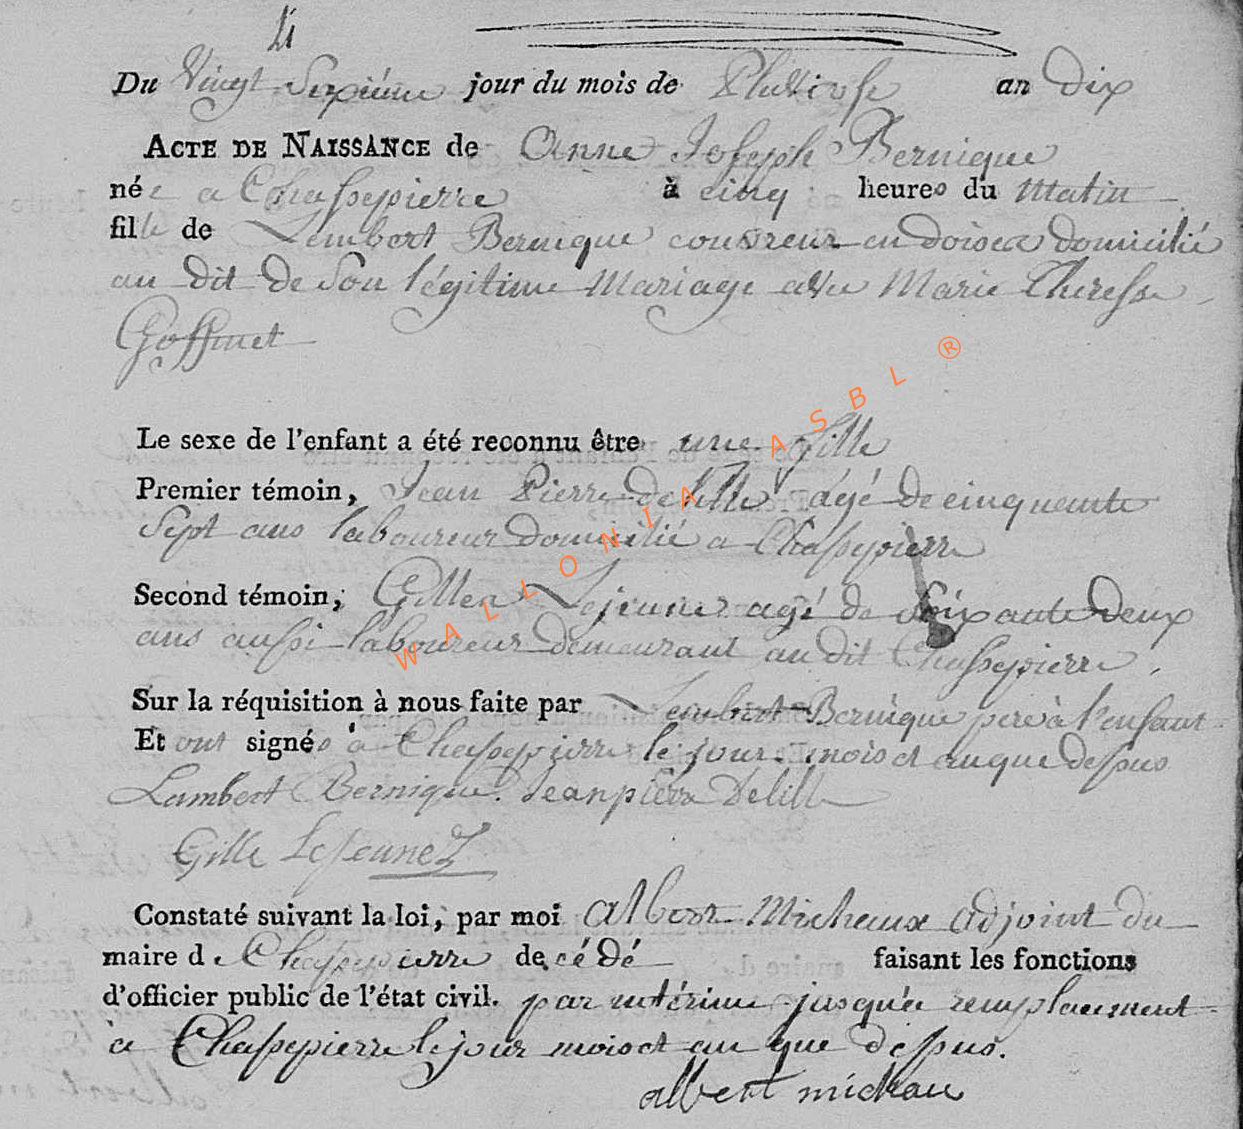 4
Du Vingt Sixiéme jour du mois de Pluviose an Dix
ACTE DE NAISSANCE de Anne Joseph Bernique
née a Chassepierre à cinq heures du Matin
fille de Lembert Bernique couvreur en doises domicilié
au dit de Son légitime Mariage avec Marie Theresse
Goffinet
Le sexe de l'enfant a été reconnu être une fille
Premier témoin, Jean Pierre delille agé de cinquante
Sept ans laboureur domicilié a Chassepierre
Second témoin, Gilles Lejeune agé de Soixante Deux
ans aussi laboureur demeurant au dit Chassepierre,
Sur la réquisition à nous faite par Lembert Bernique pere à l'enfant
Et ont signés à Chassepierre le jour mois et an que dessus
Lambert Bernique. Jean pierre Delille
Gille LeJeune
Constaté suivant la loi, par moi Albert Michaux adjoint du
maire de Chassepierre décédé faisant les fonctions
d'officier public de l'état civil. par intérime jusqu'a remplacement
à Chassepierre le jour mois et an que dessus.
albert michau
WALLONIA ASBL ®